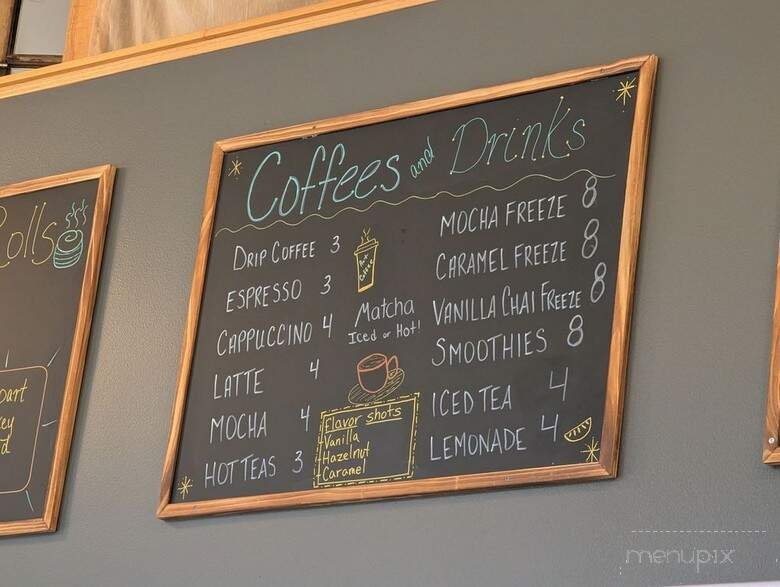 Rolls
Coffees and Drinks
DRIP COFFEE 3
ESPRESSO 3
CAPPUCCINO 4
LATTE 4
MOCHA 4
HOT TEAS 3
Matcha
Iced or Hot!
Flavor shots
-Vanilla
-Hazelnut
-Caramel
MOCHA FREEZE 8
CARAMEL FREEZE 8
VANILLA CHAI FREEZE 8
SMOOTHIES 8
ICED TEA 4
LEMONADE 4
menupix